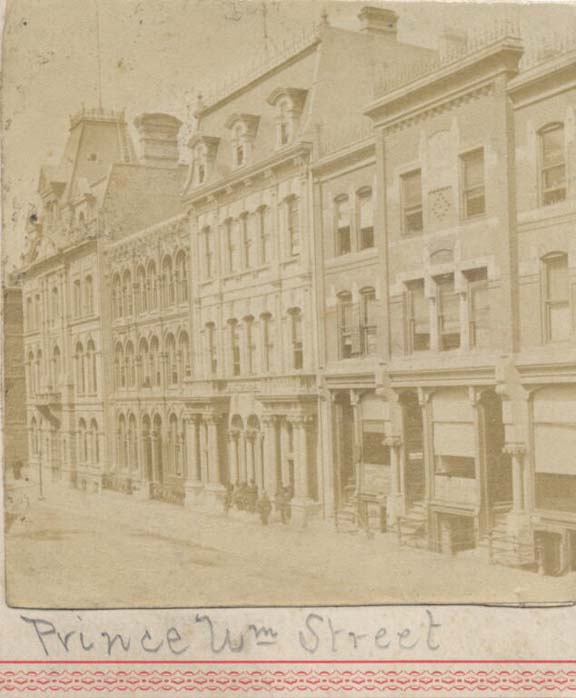 Prince Wm Street